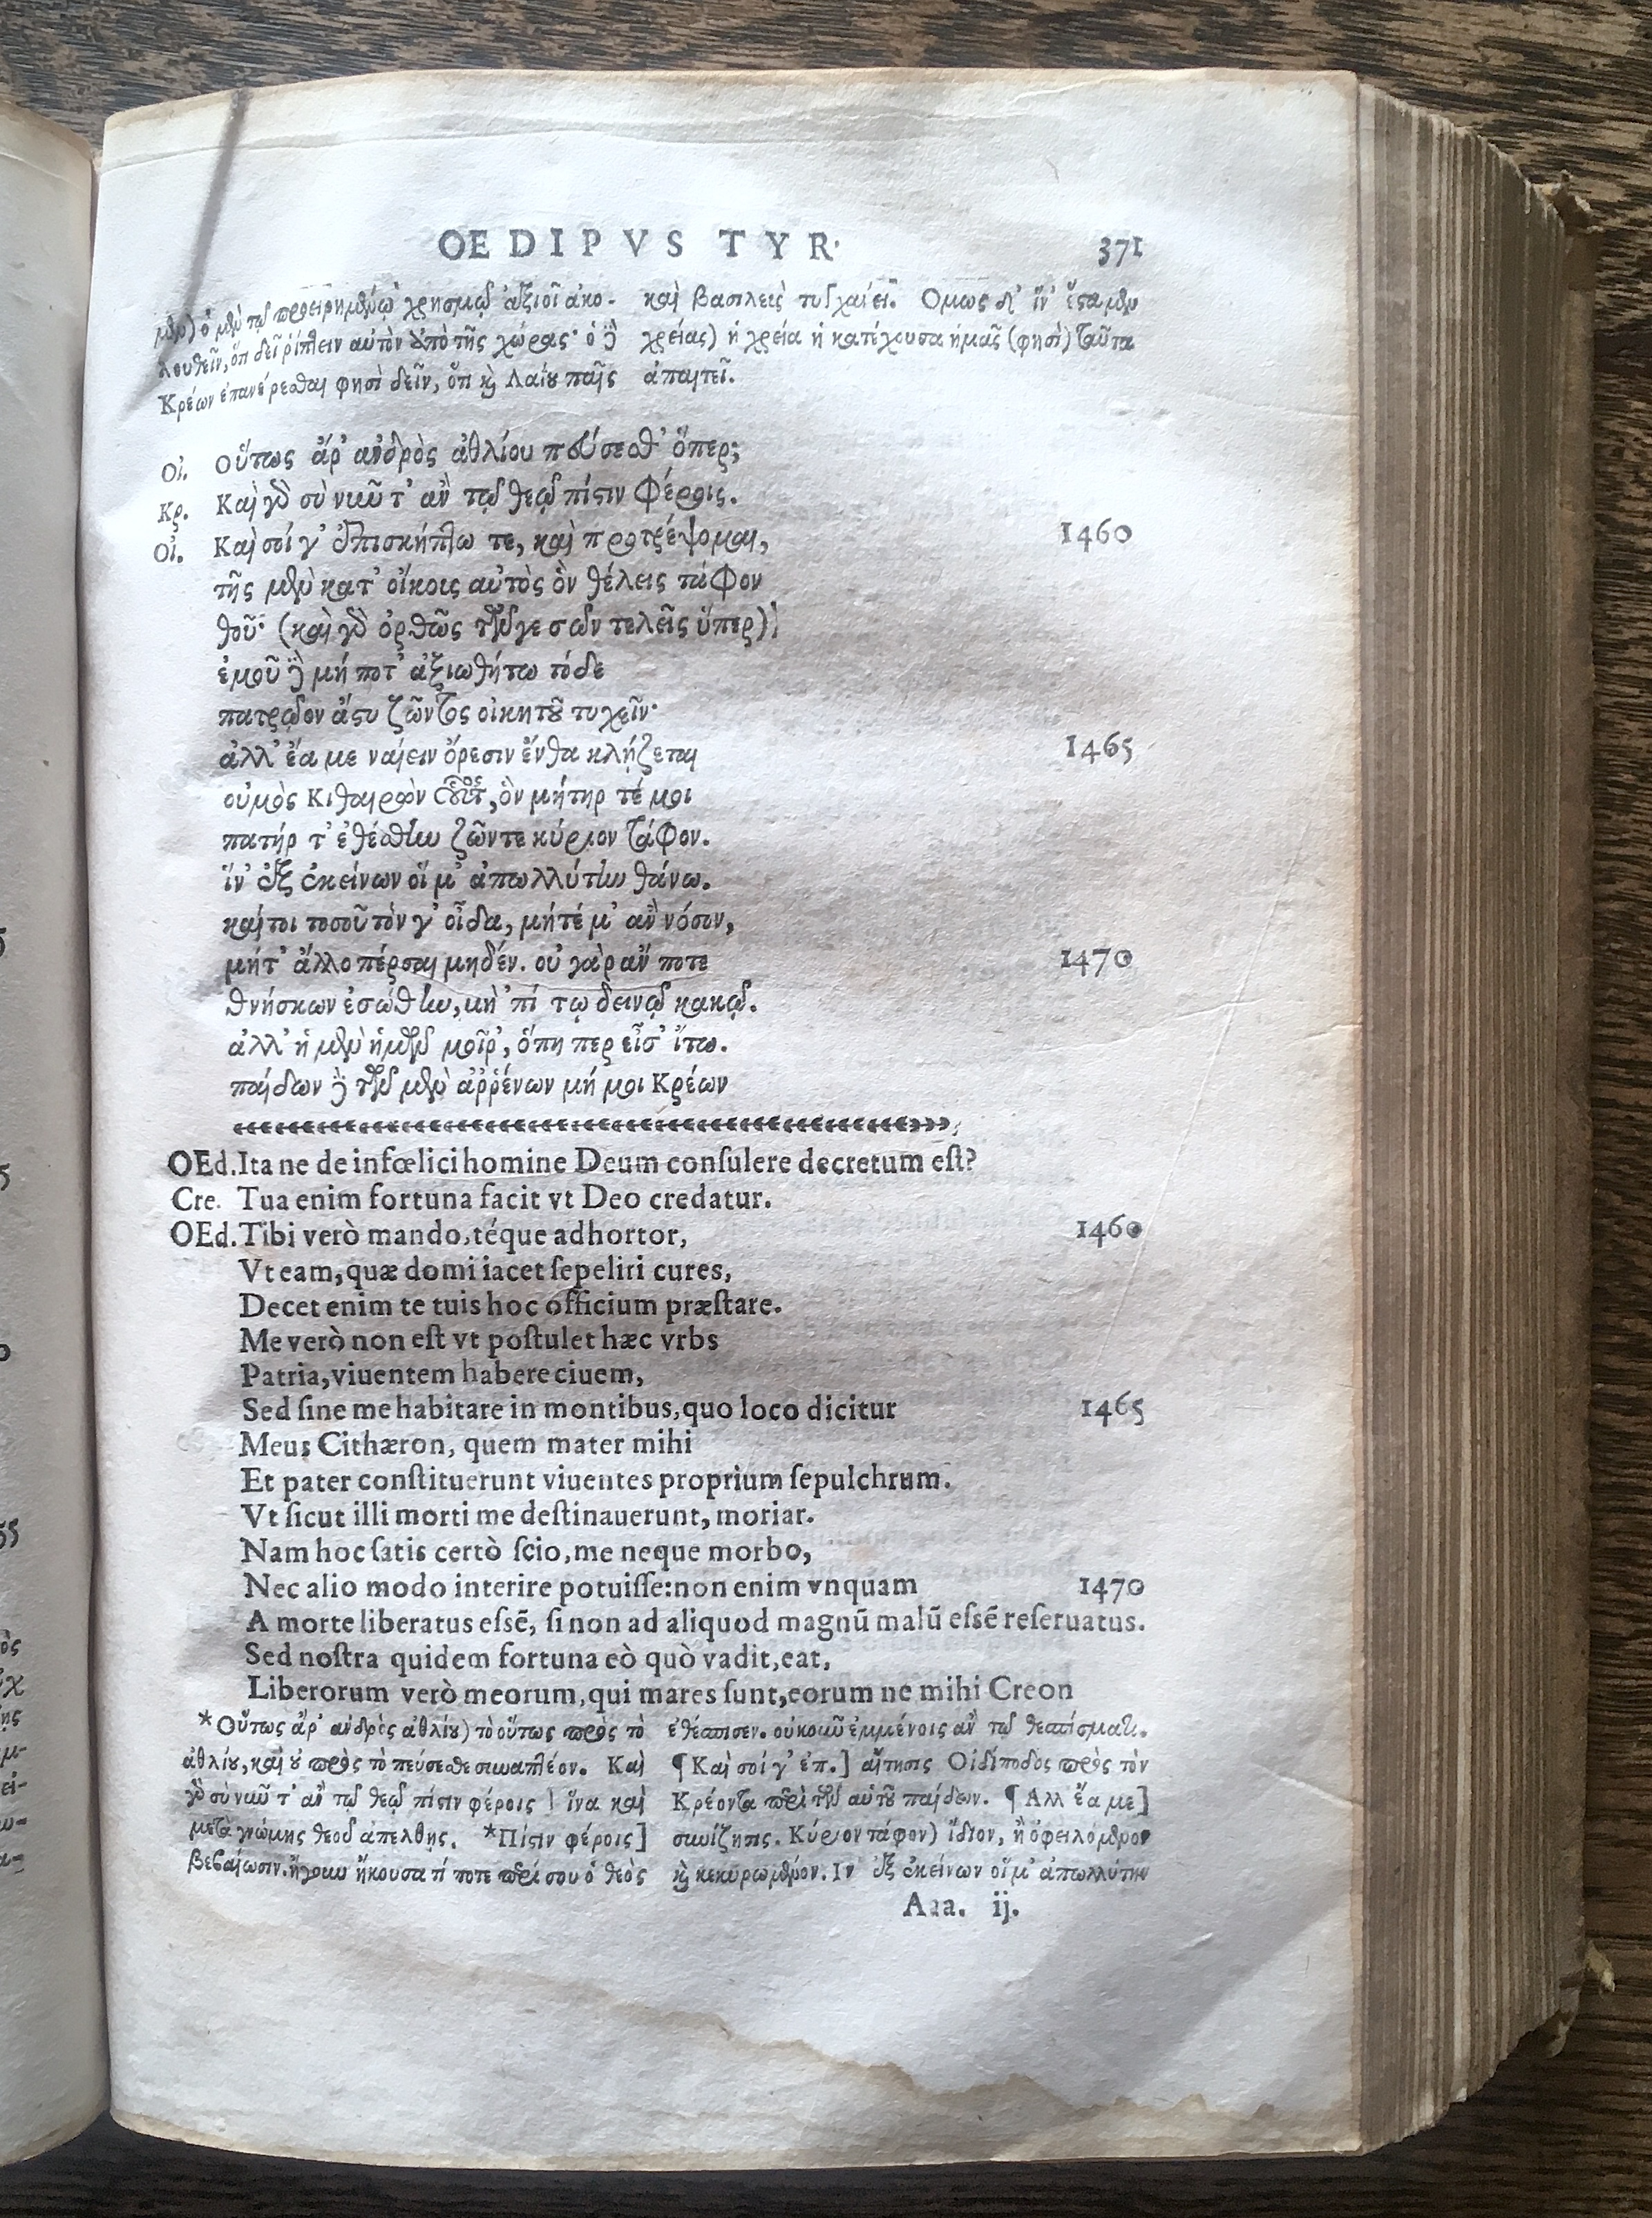 OEDIPVS TYR. 371
μὲν) ὁ μὲν τῷ προειρημένῳ χρησμῷ ἀξιοῖ ἀκο-
λουθεῖν, ὅτι δεῖ ῥίπτειν αὐτὸν ἀπὸ τῆς χώρας· ὁ δὲ
Κρέων ἐπανέρεσθαι φησὶ δεῖν, ὅτι καὶ Λαΐου παῖς
καὶ βασιλεὺς τυγχάνει. Ομως δ' ἵν' ἕσταμεν
χρείας) ἡ χρεία ἡ κατέχουσα ἡμᾶς (φησὶ) ταῦτα
ἀπαιτεῖ.
Οἰ. Οὕτως ἄρ' ἀνδρὸς ἀθλίου πεύσεσθ' ὅπερ;
Κρ. Καὶ γὰρ σὺ νῦν τ' ἂν τῷ θεῷ πίστιν φέροις.
Οἰ. Καὶ σοί γ' ἐπισκήπτω τε, καὶ προτρέψομαι, 1460
τῆς μὲν κατ' οἴκοις αὐτὸς ὃν θέλεις τάφον
θοῦ· (καὶ γὰρ ὀρθῶς τῶν γε σῶν τελεῖς ὕπερ)
ἐμοῦ δὲ μή ποτ' ἀξιωθήτω τόδε
πατρῷον ἄστυ ζῶντος οἰκητοῦ τυχεῖν·
ἀλλ' ἔα με ναίειν ὄρεσιν ἔνθα κλῄζεται 1465
οὑμὸς Κιθαιρὼν οὗτος, ὃν μήτηρ τέ μοι
πατήρ τ' ἐθέσθην ζῶντε κύριον τάφον.
ἵν' ἐξ ἐκείνων οἵ μ' ἀπωλλύτην θάνω.
καίτοι τοσοῦτόν γ' οἶδα, μήτέ μ' ἂν νόσον,
μήτ' ἄλλο πέρσαι μηδέν. οὐ γὰρ ἄν ποτε 1470
θνήσκων ἐσώθην, μὴ 'πί τῳ δεινῷ κακῷ.
ἀλλ' ἡ μὲν ἡμῶν μοῖρ', ὅπη περ εἶσ' ἴτω.
παίδων δὲ τῶν μὲν ἀῤῥένων μή μοι Κρέων
OEd. Itane de infœlici homine Deum consulere decretum est?
Cre. Tua enim fortuna facit vt Deo credatur.
OEd. Tibi verò mando, téque adhortor, 1460
Vt eam, quæ domi iacet sepeliri cures,
Decet enim te tuis hoc officium præstare.
Me verò non est vt postulet hæc vrbs
Patria, viuentem habere ciuem,
Sed sine me habitare in montibus, quo loco dicitur 1465
Meus Cithæron, quem mater mihi
Et pater constituerunt viuentes proprium sepulchrum.
Vt sicut illi morti me destinauerunt, moriar.
Nam hoc satis certò scio, me neque morbo,
Nec alio modo interire potuisse: non enim vnquam 1470
A morte liberatus essẽ, si non ad aliquod magnũ malũ essẽ reseruatus.
Sed nostra quidem fortuna eò quò vadit, eat,
Liberorum verò meorum, qui mares sunt, eorum ne mihi Creon
*Οὕτως ἄρ' ἀνδρὸς ἀθλίου) τὸ οὕτως πρὸς τὸ
ἀθλίου, καὶ οὐ πρὸς τὸ πεύσεσθε συναπτέον. Καὶ
γὰρ σὺ νῦν τ' ἂν τῷ θεῷ πίστιν φέροις] ἵνα καὶ
μετὰ γνώμης θεοῦ ἀπέλθῃς. *Πίστιν φέροις]
βεβαίωσιν. ἤγουν ἤκουσα τί ποτε περί σου ὁ θεὸς
ἐθέσπισεν. οὐκοῦν ἐμμένοις ἂν τῷ θεσπίσματι.
¶ Καὶ σοί γ' ἐπ.] αἴτησις Οἰδίποδος πρὸς τὸν
Κρέοντα περὶ τῶν αὐτοῦ παίδων. ¶ Αλλ' ἔα με]
συνίζησις. Κύριον τάφον) ἴδιον, ἢ ὀφειλόμενον
καὶ κεκυρωμένον. Ιν' ἐξ ἐκείνων οἵ μ' ἀπωλλύτην
Aaa. ij.